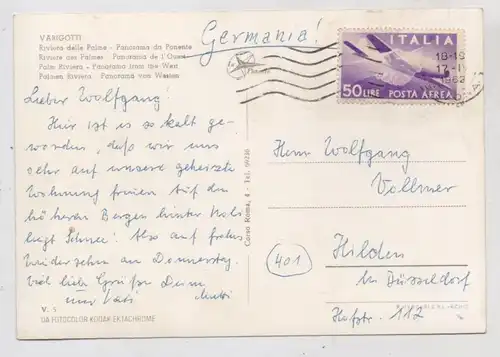 VARIGOTTI
Riviera delle Palme - Panorama da Ponente
Riviera des Palmes - Panorama de l'Ouest
Palm Riviera - Panorama from the West
Palmen Riviera - Panorama von Westen
Germania!
ITALIA
50 LIRE POSTA AEREA
18-19
1962
Lieber Wolfgang!
Hier ist es so kalt ge-
worden, daß wir uns
sehr auf unsere geheizte
Wohnung freuen. Auf den
höheren Bergen hinter
liegt Schnee! Also auf frohes
Wiedersehn am Donnerstag.
Viel liebe Grüße Deine
Vati Mutti
Corsi Roma, 4 - Tel.
Herrn Wolfgang
Vollmer
401
Hilden
in Düsseldorf
Hofstr. 112
V. 5
DA FOTOCOLOR KODAK EKTACHROME